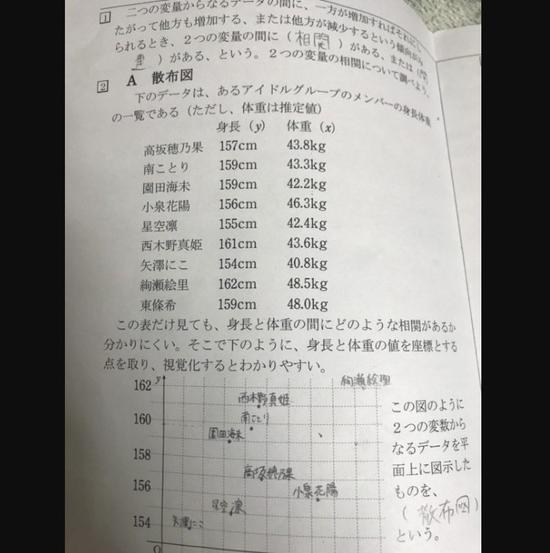 1 二つの変量からなるデータの間に、一方が増加すればそれにし
たがって他方も増加する、または他方が減少するという傾向がみ
られるとき、2つの変量の間に(相関)がある、または(
)がある、という。2つの変量の相関について調べよう。
2 A 散布図
下のデータは、あるアイドルグループのメンバーの身長体重
の一覧である(ただし、体重は推定値)
身長(y) 体重(x)
高坂穂乃果 157cm 43.8kg
南ことり 159cm 43.3kg
園田海未 159cm 42.2kg
小泉花陽 156cm 46.3kg
星空凛 155cm 42.4kg
西木野真姫 161cm 43.6kg
矢澤にこ 154cm 40.8kg
絢瀬絵里 162cm 48.5kg
東條希 159cm 48.0kg
この表だけ見ても、身長と体重の間にどのような相関があるか
分かりにくい。そこで下のように、身長と体重の値を座標とする
点を取り、視覚化するとわかりやすい。
y
162 絢瀬絵理
西木野真姫
160 南ことり
園田海未
158
高坂穂乃果
156 小泉花陽
星空凛
154 矢澤にこ
O
この図のように
2つの変数から
なるデータを平
面上に図示した
ものを、
(散布図)
という。